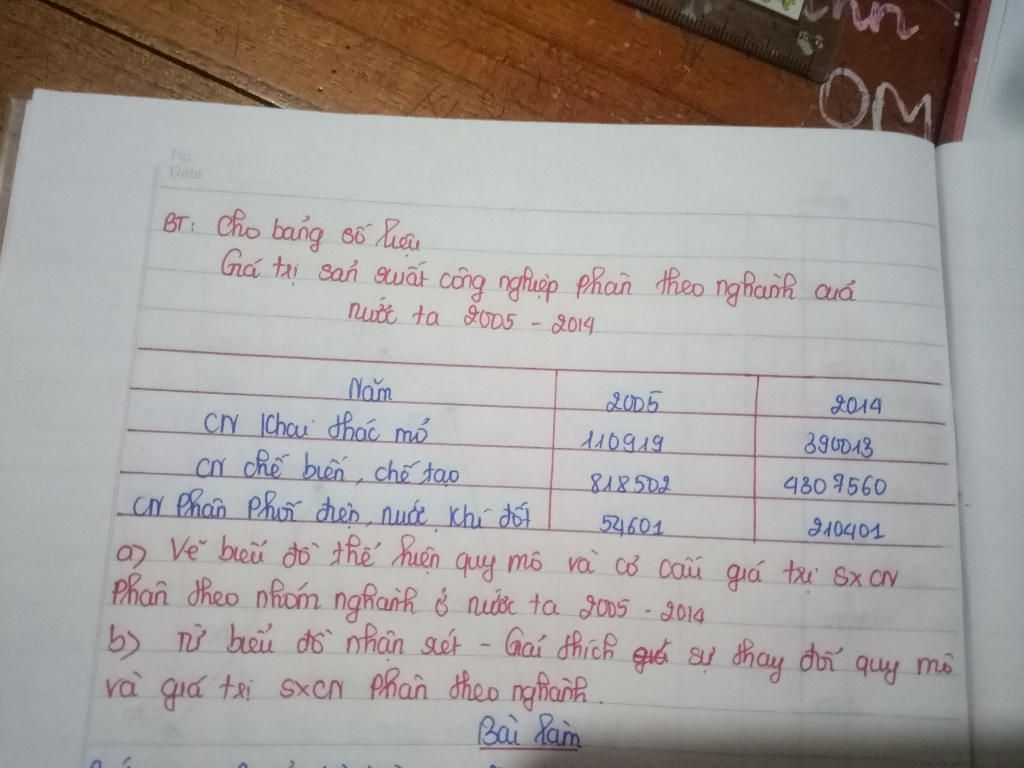 OM
No.
Date
BT: Cho bảng số liệu
Giá trị sản suất công nghiệp phân theo nghành cuả
nước ta 2005 - 2014
Năm 2005 2014
CN Khai thác mỏ 110919 390013
CN chế biến, chế tạo 818502 4307560
CN Phân Phối điện, nước, khí đốt 54601 210401
a) Vẽ biểu đồ thể hiện quy mô và cơ cấu giá trị SXCN
Phân theo nhóm nghành ở nước ta 2005 - 2014
b) Từ biểu đồ nhận xét - Giải thích sự thay đổi quy mô
và giá trị SXCN Phân theo nghành.
Bài làm